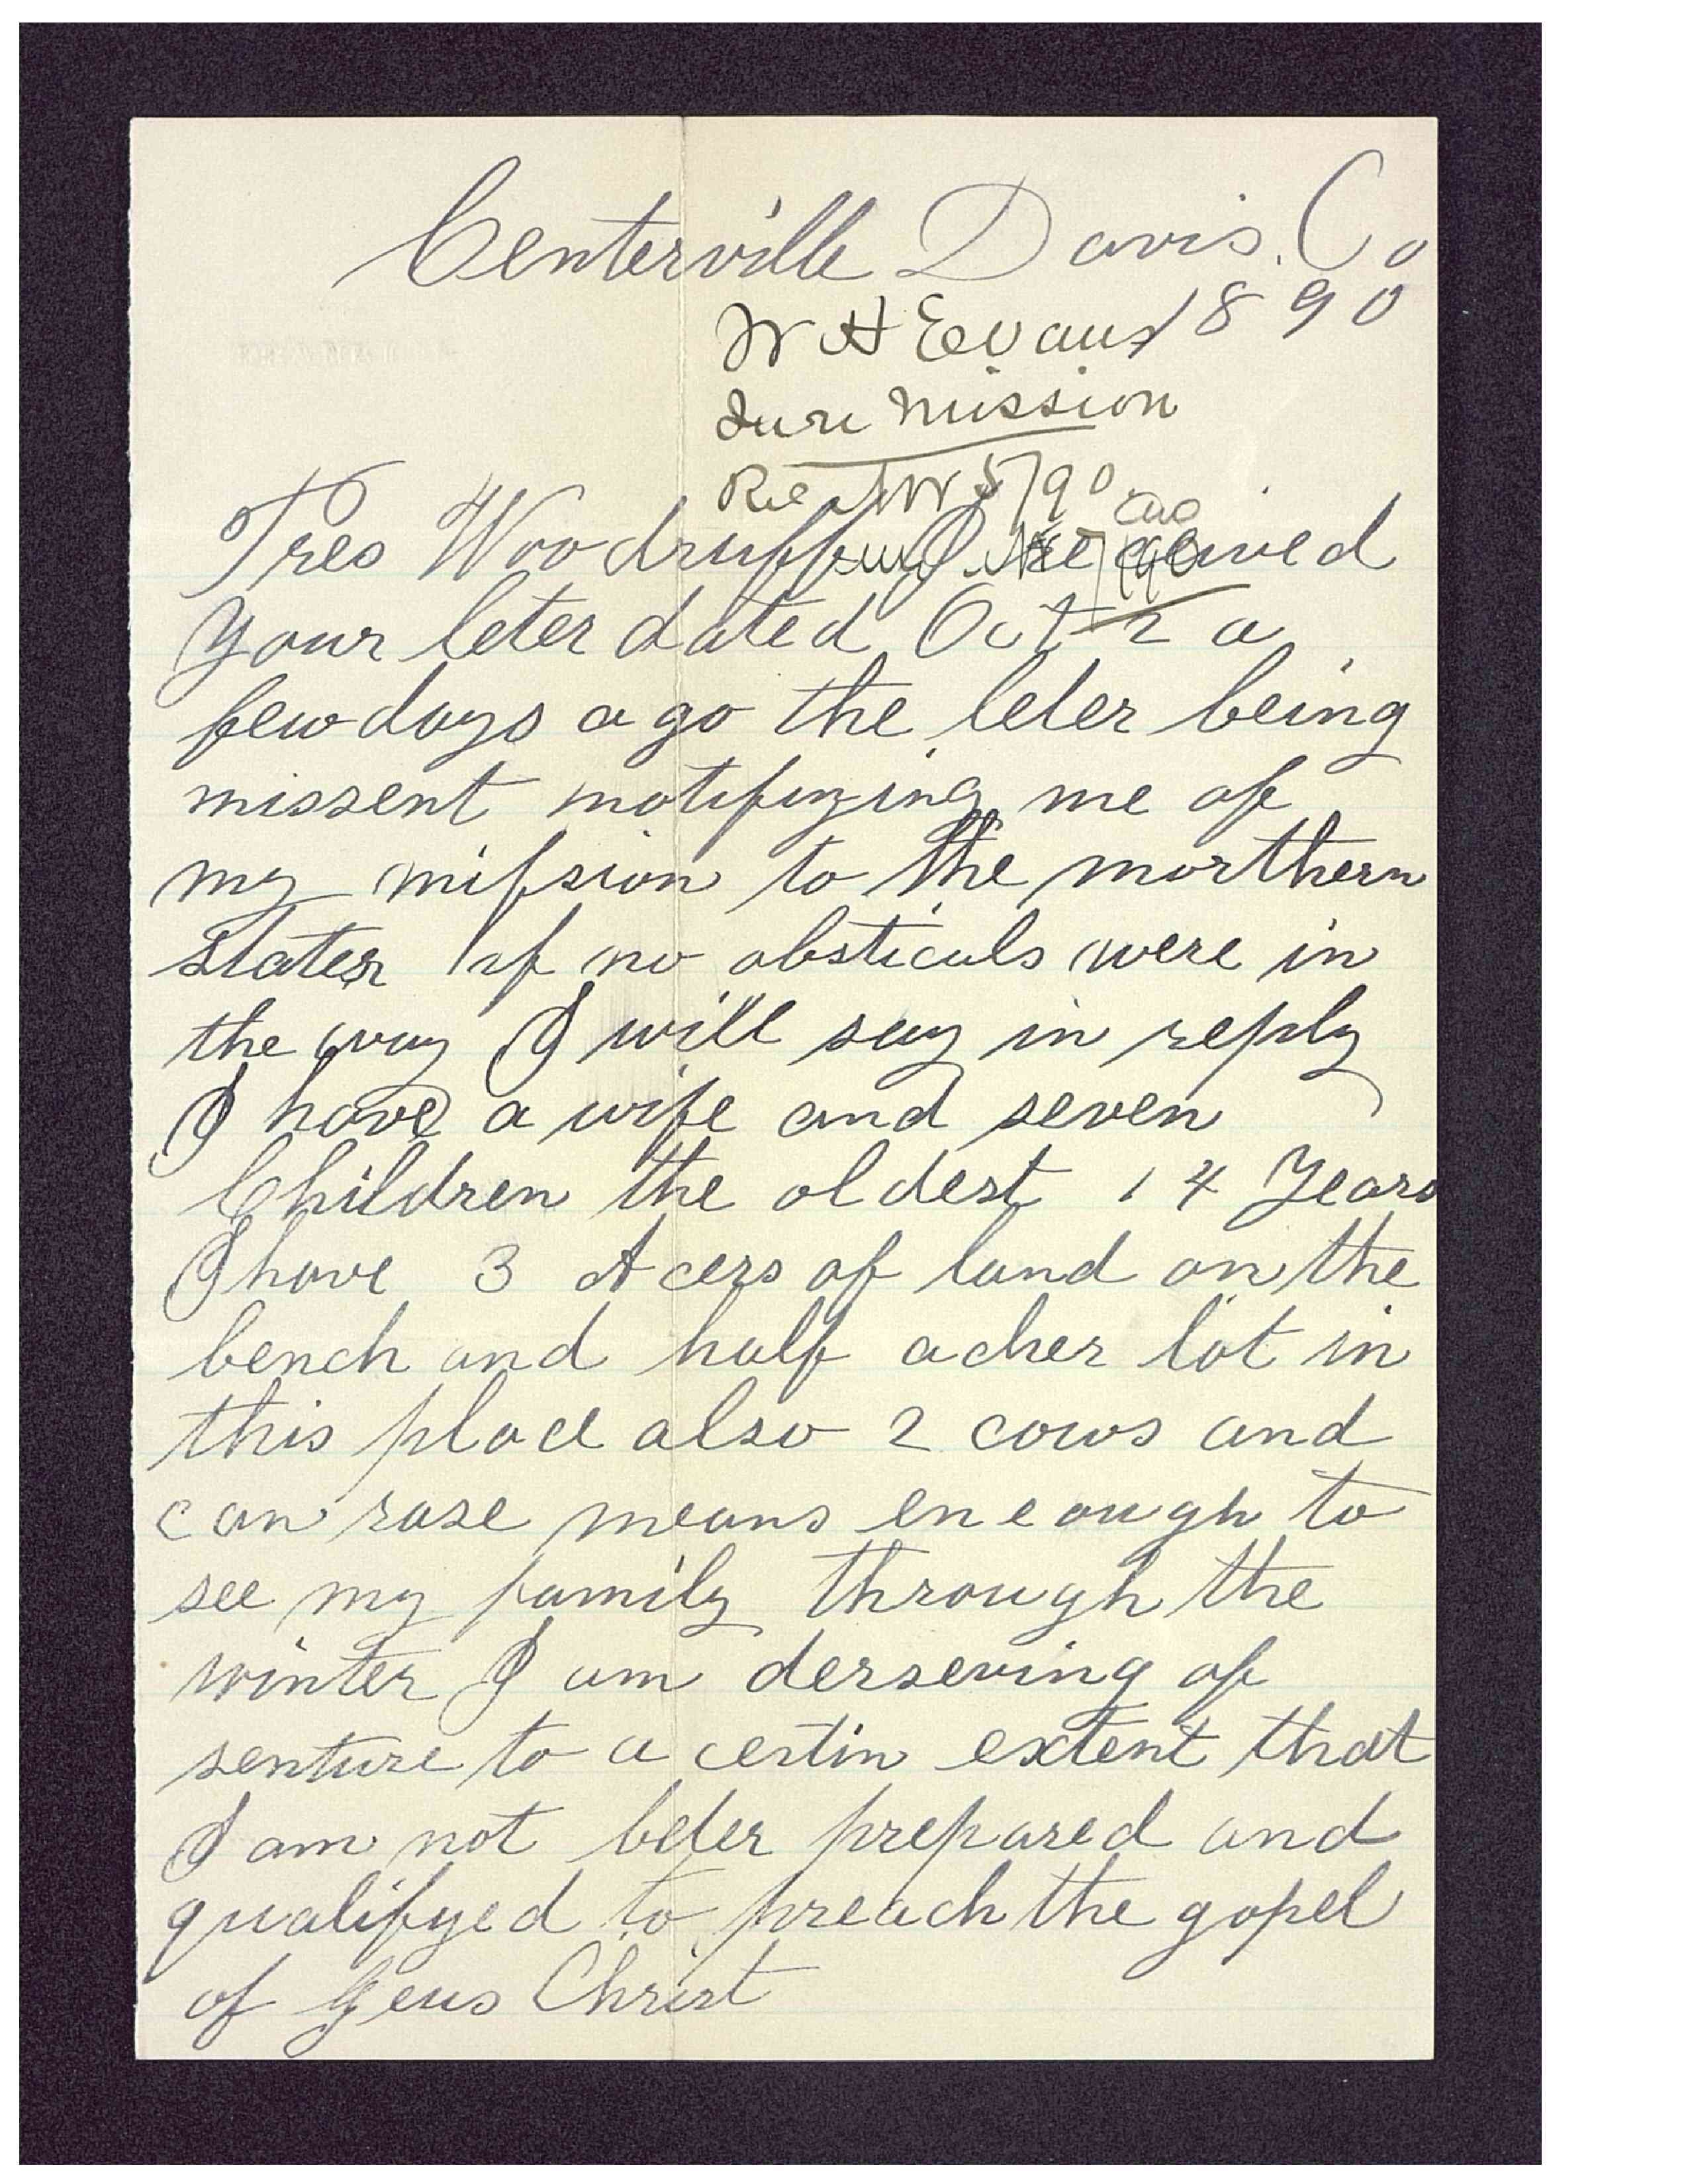 Centerville Davis. Co
1890
W H Evans
Mission
Tres Woodruff I receeived
Your leter dated Oct 2 a
few days a go the leter being
missent notifying me of
my mission to the northern
states if no obsticuls were in
the way I will say in reply
I have a wife and seven
Children the oldest 14 Years
I have 3 Acers of land on the
bench and half acher lot in
this place also 2 cows and
can rase means eneough to
see my family through the
winter I am derseving of
senture to a certin extent that
I am not beter prepared and
qualifyed to preach the gopel
of Jeus Christ